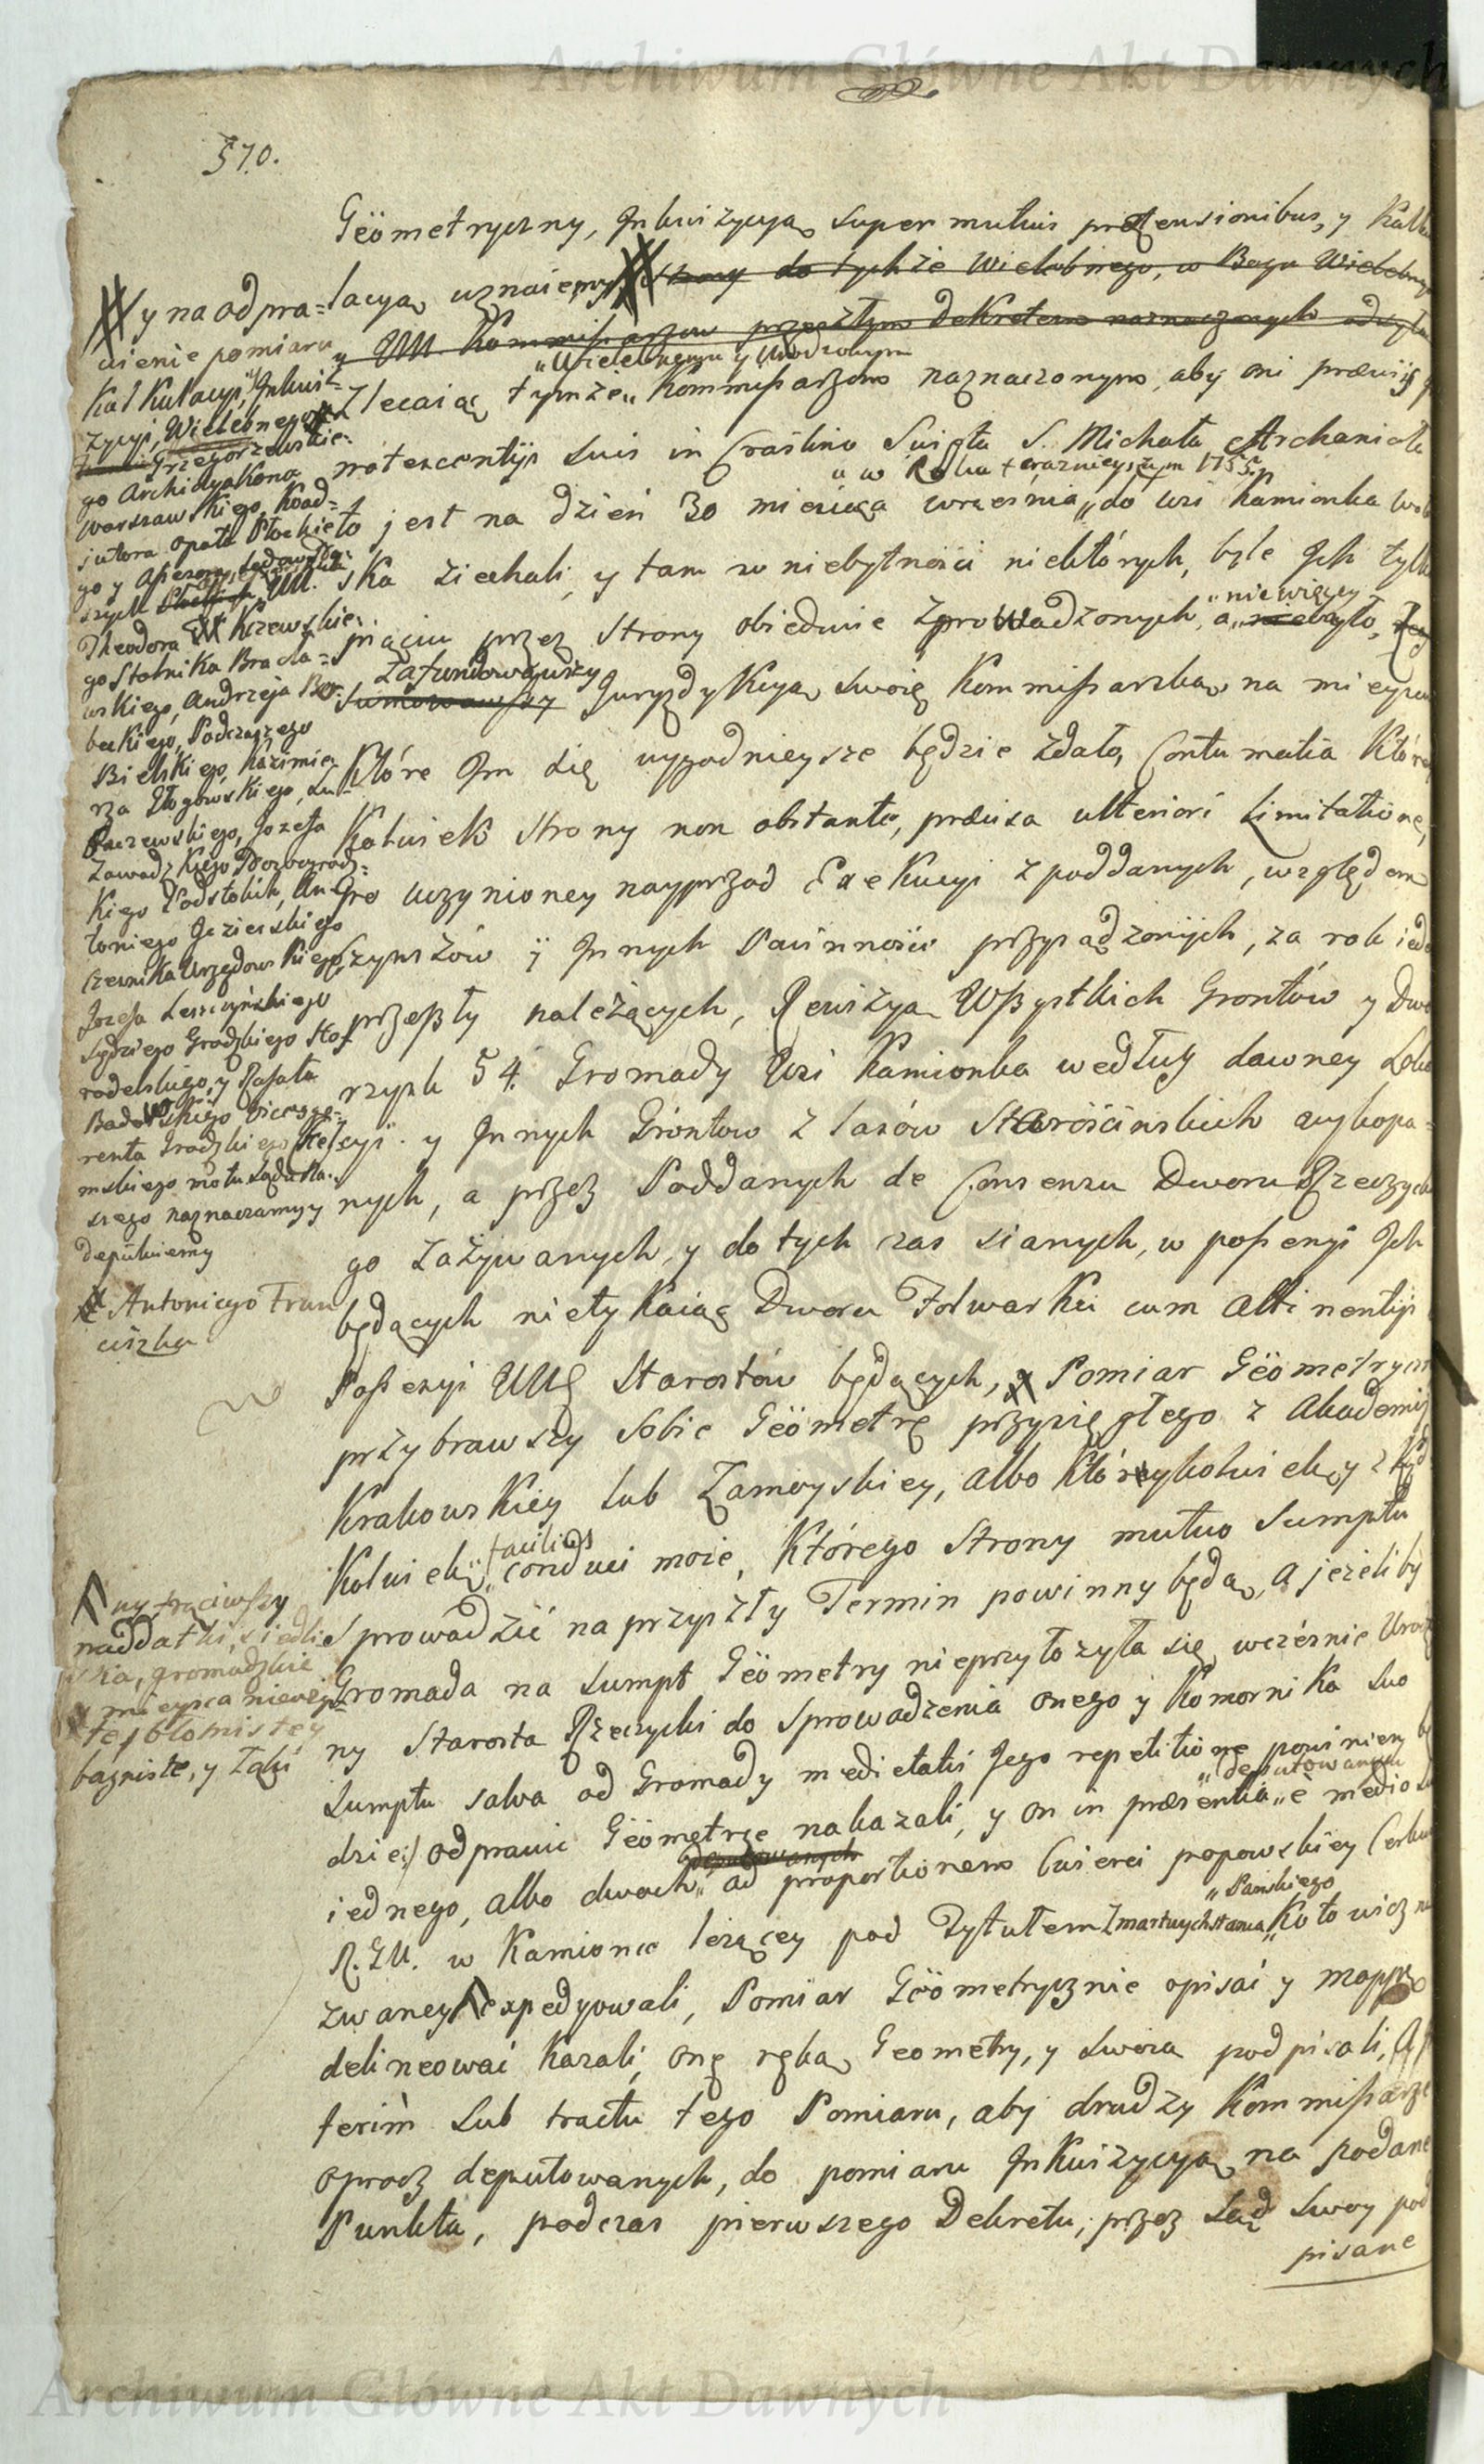 Archiwum Główne Akt Dawnych
570.
Gëometryczny, Inkwizycyą super mutuis prætensionibus, y Kalku
lacyą uznaiemy, Strony do tychże Wielebnego, w Bogu Wielebnego
y UU. Kommissarzow przeszłym Dekretem naznaczonych odsyła
„Wielebnemu y Urodzonym
Zlecaiąc tymże „ Kommissarzom naznaczonym, aby oni præviis
innotescentijs suis in Crastino Swięta S. Michała Archanioła
„ w Roku teraznieyszym 1755.
to jest na dzień 30 miesiąca września „ do wsi Kamionka Wol
ska ziechali, y tam w niebytności niektórych, byle Ich tylko
„ niewięcey
pięciu przez Strony obiedwie zprowadzonych, a „ niebyło,
Zafundowawszy
Juryzdykcyą swoię Kommissarską na mieyscu
które Im się wygodnieysze będzie zdało, Contumatia Którey
Kolwiek Strony non obstante, præcisa ulteriori Limitatione,
Pro uczynioney nayprzod Exekucyi z poddanych, względem
Czynszów ÿ Innych Powinności przysądzonych, za rok ieden
przeszły należących, Rewizyą Wszystkich Grontów y Dwo
rzysk 54. Gromady Wsi Kamionka według dawney Loka
cyi y Innych Grontow z lasów Starościnskich wykopa=
nych, a przez Poddanych de Consensu Dworu Rzeczyckie
go zażywanych, y dotych czas sianych, w possessyi Ich
będących nietykaiąc Dworu Folwarku cum attinentijs
Possesyi UUę Starostów będących, y Pomiar Gëometryczny
przybrawszy sobie Gëometrę przysięgłego z Akademij
Krakowskiey lub Zamoyskiey, albo Któreykolwiek, y zkąd
facilius
Kolwiek „ conduci może, Którego Strony mutuo Sumptu
Sprowadzić na przyszły Termin powinny będą, A jeżeliby
Gromada na Sumpt Gëometry nieprzyłożyła się wcześnie Urodzo
ny Starosta Rzeczycki do Sprowadzenia onego y Komornika suo
Sumptu salva od Gromady medietatis Jego repetitione powinien bę
„ deputowanego
dzie:/ odprawić Gëometrze nakazali, y on in præsentia „ è medio sui
deputowanych
iednego, albo dwoch „ ad proportionem Cwierci popowskiey Cerkwi
„ Pańskiego
R. G. U. w Kamionce leżącey pod Tytułem Zmartwychstania „ Kotowicz na
zwaney expedyowali, Pomiar Gëometrycznie opisać y mappę
delineować kazali, onę ręką Geometry, y swoią podpisali,
terim sub tractu tego Pomiaru, aby drudzy Kommissarze
oprocz deputowanych, do pomiaru Inkwizycyą na podane
Punkta, podczas pierwszego Dekretu, przez Sąd Swoy pod
pisane
y na odpra=
wienie pomiaru
Kalkulacyi, Inkwi=
zycyi, Wielebnego
Grzegorzewskie=
go Archidyakona
Warszawskiego, Koad=
jutora Opata Płockie
go y Assessora
szych UU.
Theodora Krzewskie
go Stolnika Bracła=
wskiego, Andrzeja
beckiego, Podczaszego
Bielskiego, Kazimie
rza Głogowskiego,
Jozefa
Zawadzkiego
kiego Podstolich, An
toniego Jezierskiego
Czesnika Urzędowskiego,
Jozefa Leszczyńskiego
Sędziego Grodzkiego
y Rafała
Badowskiego Vicesge=
renta Grodzkiego Cheł
mskiego motu Sądu Na=
szego naznaczamy y
deputuiemy
Antoniego Fran
ciszka
wytrąciwszy
naddatki, siedli
ska, gromadzkie
mieysca nieuży
te, błotniste y
bagniste, y łąki
Archiwum Główne Akt Dawnych